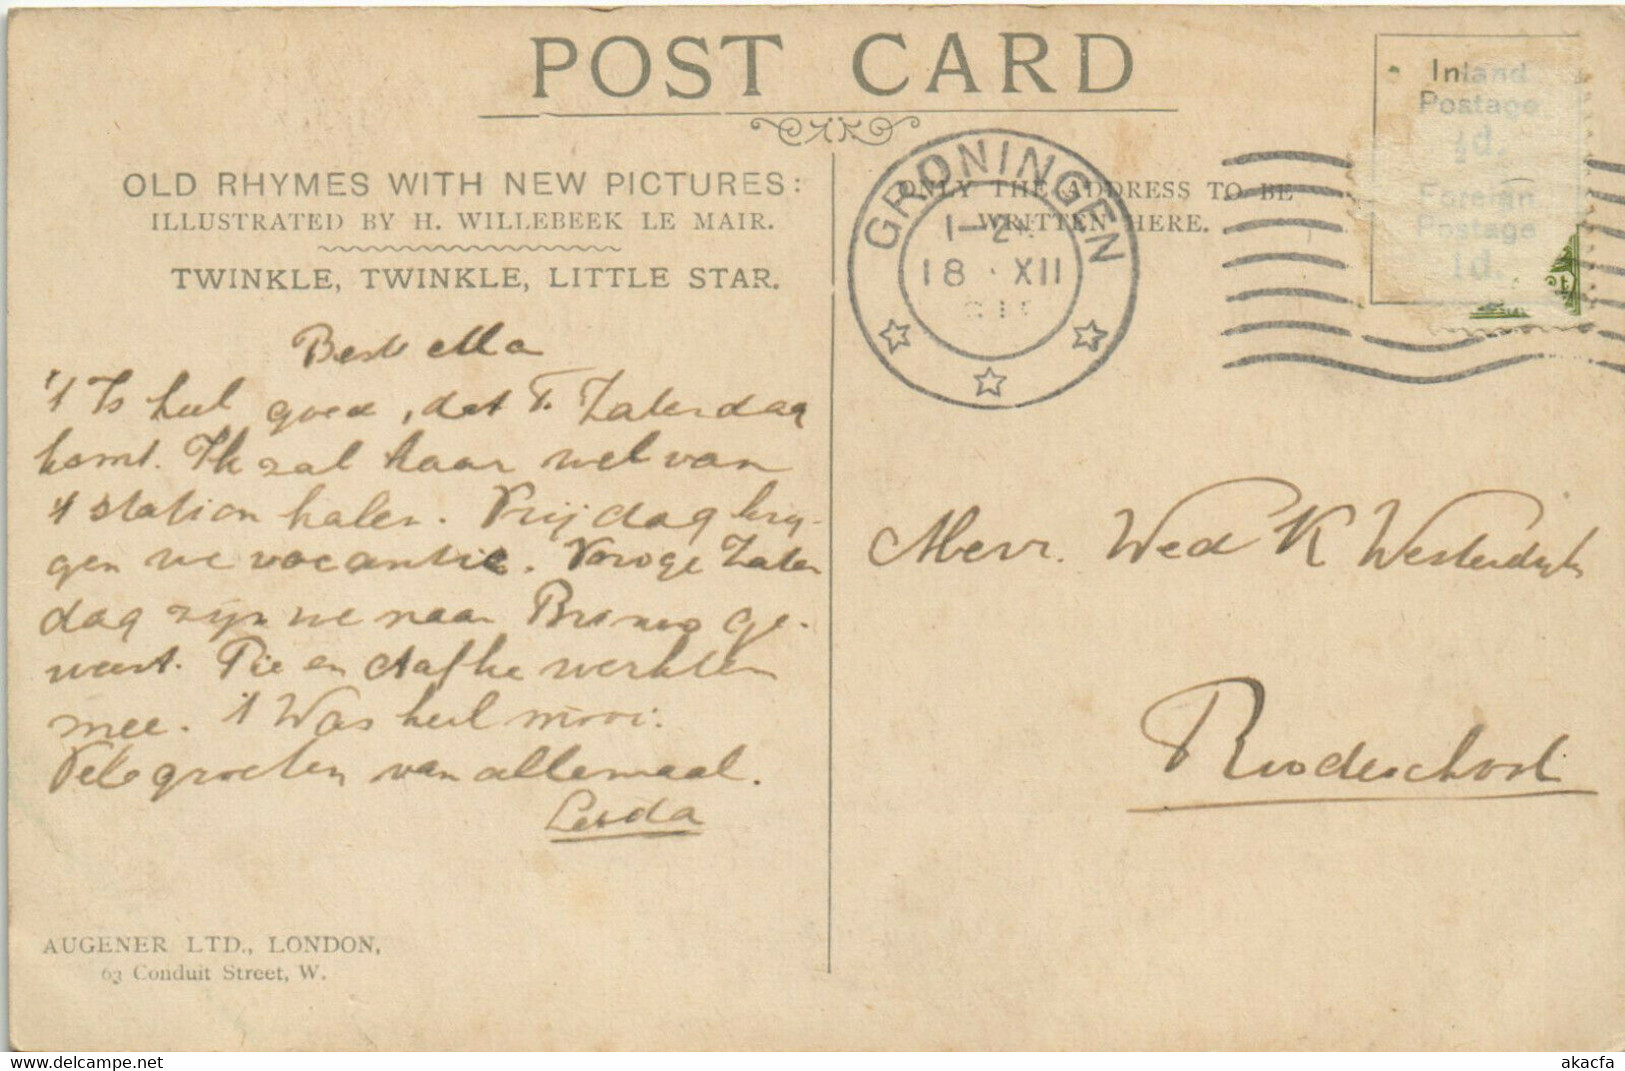 POST CARD
OLD RHYMES WITH NEW PICTURES:
ILLUSTRATED BY H. WILLEBEEK LE MAIR.
TWINKLE, TWINKLE, LITTLE STAR.
Beste
't Is heel goed, dat T. Zaterdag
komt. Ik zal haar wel van
't station halen. Vrijdag krij-
gen we vacantie. Vorige Zater
dag zijn we naar ge-
weest. Pie en Aafke werkten
mee. 't Was heel mooi.
Vele groeten van allemaal.
Leida
AUGENER LTD., LONDON,
63 Conduit Street, W.
ONLY THE ADDRESS TO BE
WRITTEN HERE.
GRONINGEN
1-2
18 · XII
Inland
Postage
½d.
Foreign
Postage
1d.
Mevr. Wed K Westerdijk
Roodeschool
akacfa